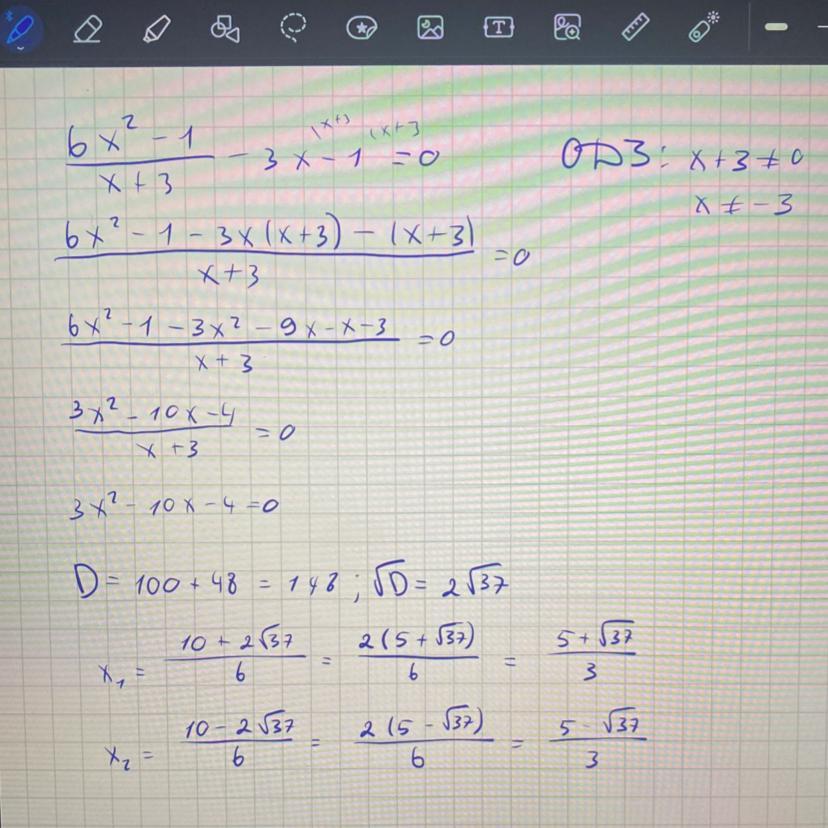 (x+3 (x+3
6x² - 1 / x + 3 - 3x - 1 = 0 ОДЗ: x + 3 ≠ 0
x ≠ -3
6x² - 1 - 3x(x+3) - (x+3) / x+3 = 0
6x² - 1 - 3x² - 9x - x - 3 / x + 3 = 0
3x² - 10x - 4 / x + 3 = 0
3x² - 10x - 4 = 0
D = 100 + 48 = 148 ; √D = 2√37
x₁ = 10 + 2√37 / 6 = 2(5 + √37) / 6 = 5 + √37 / 3
x₂ = 10 - 2√37 / 6 = 2(5 - √37) / 6 = 5 - √37 / 3